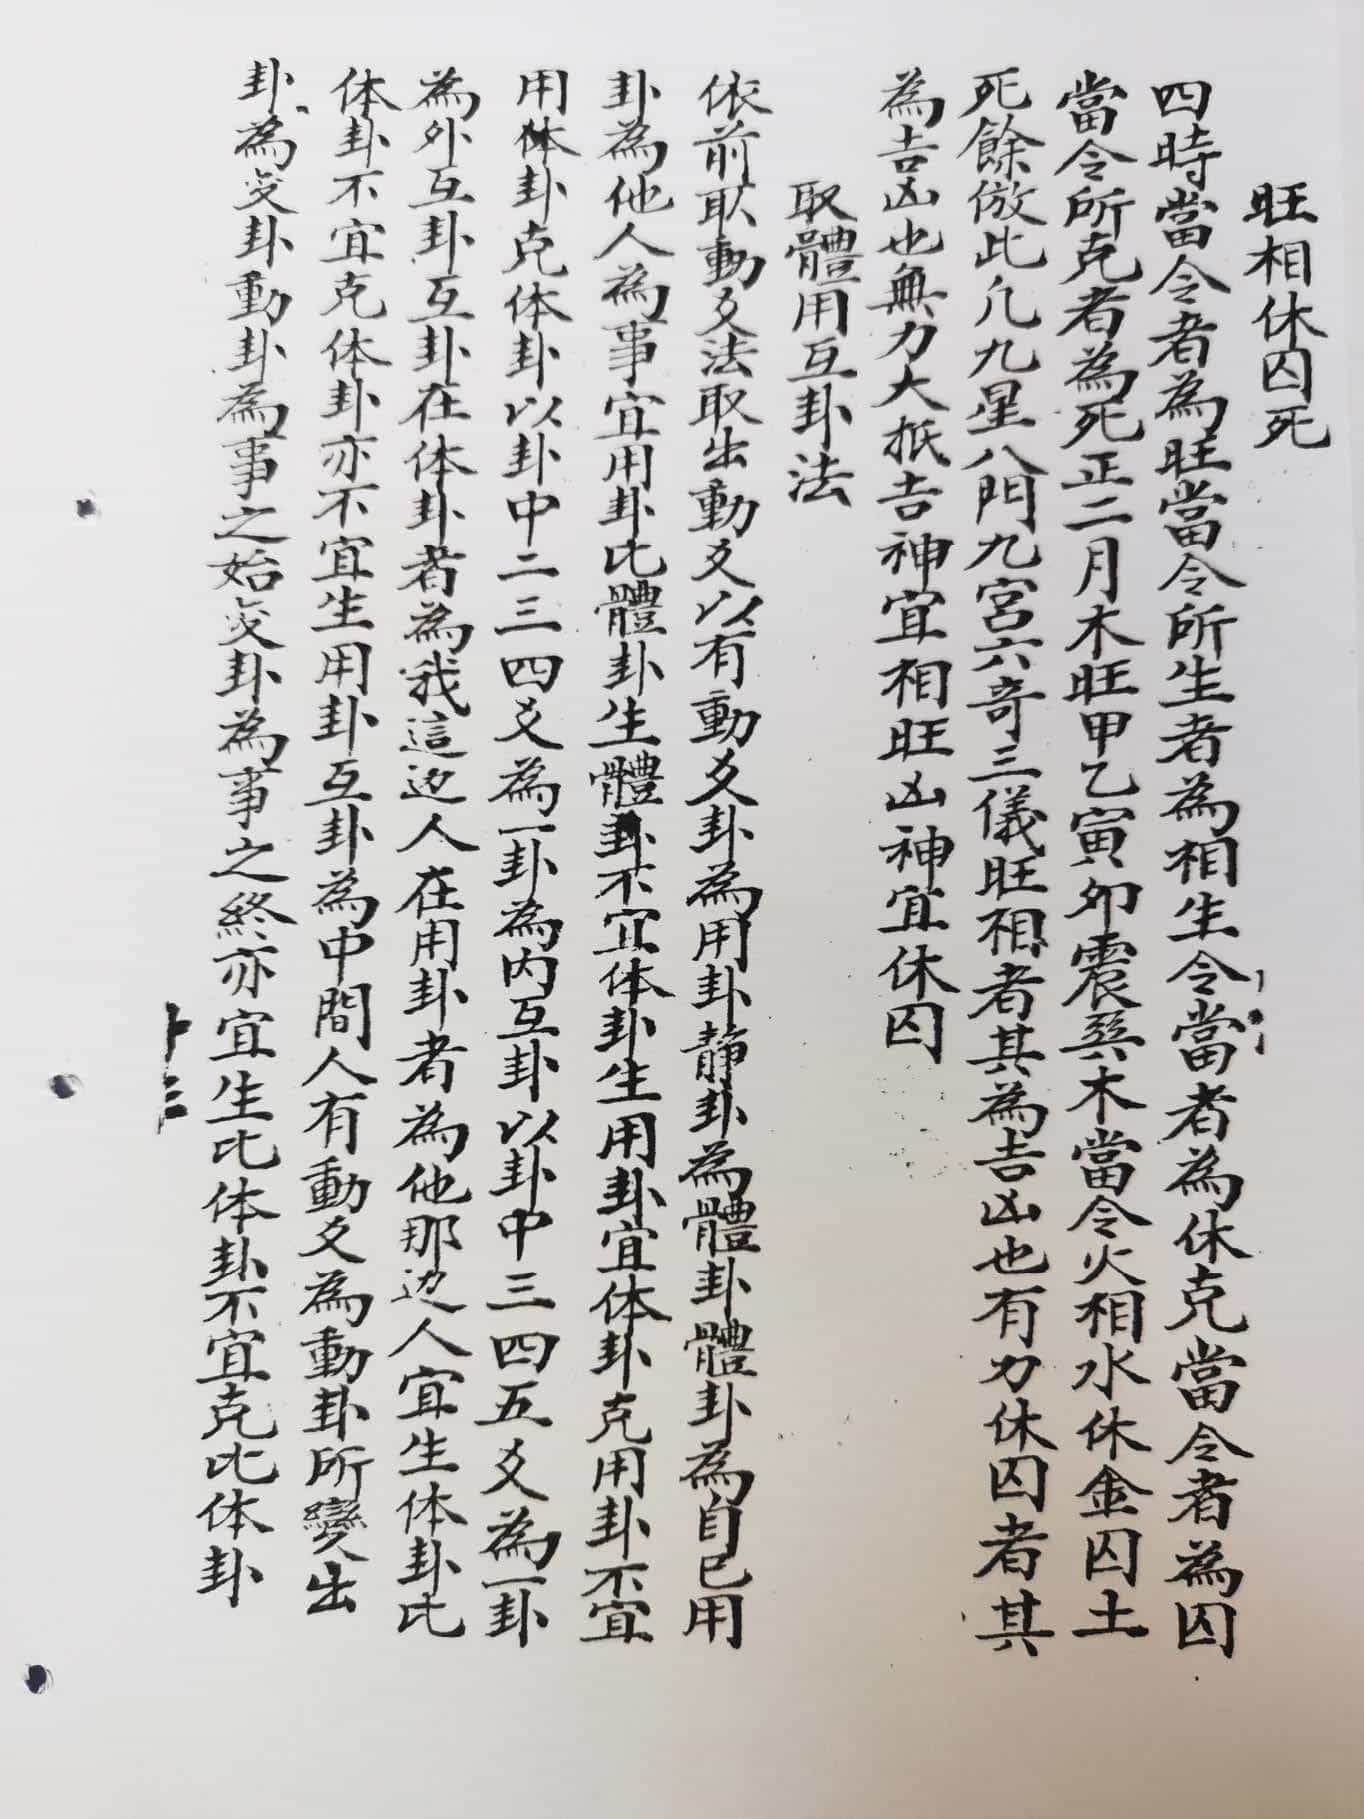 旺相休囚死
四時當令者為旺當令所生者為相生令當者為休克當令者為囚
當令所克者為死正二月木旺甲乙寅卯震巽木當令火相水休金囚土
死餘倣此凢九星八門九宮六奇三儀旺相者其為吉凶也有力休囚者其
為吉凶也無力大抵吉神宜相旺凶神宜休囚
取體用互卦法
依前取動爻法取出動爻以有動爻卦為用卦静卦為體卦體卦為自已用
卦為他人為事宜用卦比體卦生體卦不宜体卦生用卦宜体卦克用卦不宜
用体卦克体卦以卦中二三四爻為一卦為内互卦以卦中三四五爻為一卦
為外互卦互卦在体卦者為我這边人在用卦者為他那边人宜生体卦比
体卦不宜克体卦亦不宜生用卦互卦為中間人有動爻為動卦所變出
卦為变卦動卦為事之始变卦為事之終亦宜生比体卦不宜克比体卦
十三